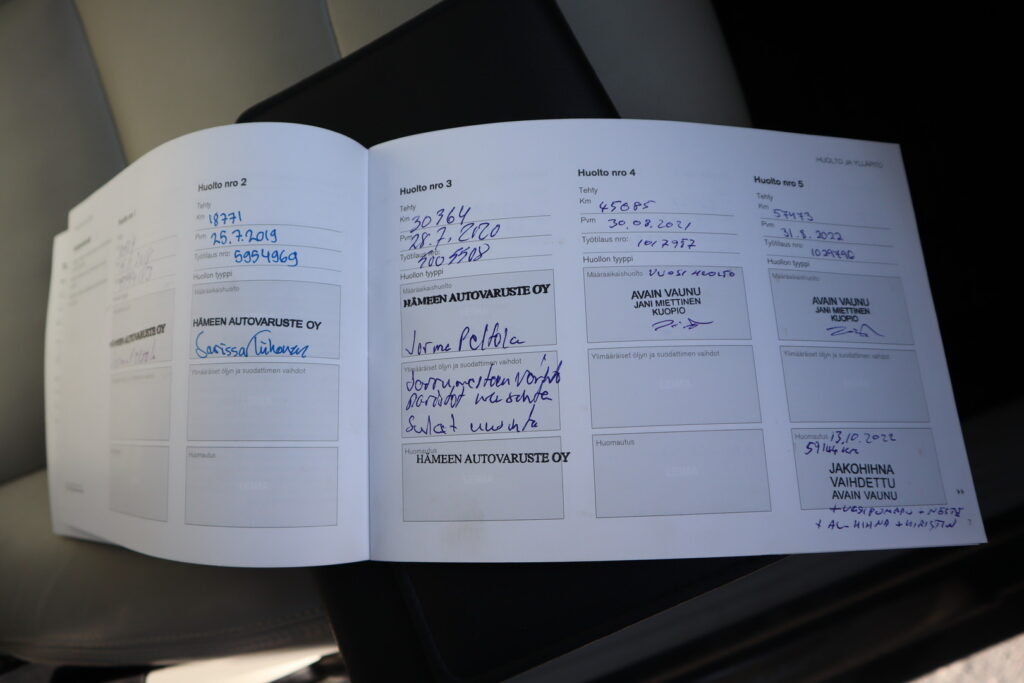 HUOLTO JA YLLÄPITO
Huolto nro 2
Tehty
Km 18771
Pvm 25.7.2019
Työtilaus nro: 5954969
Huollon tyyppi
Määräaikaishuolto
HÄMEEN AUTOVARUSTE OY
Ylimääräiset öljyn ja suodattimen vaihdot
Huomautus
Huolto nro 3
Tehty
Km 30364
Pvm 28.7.2020
Työtilaus nro:
Huollon tyyppi
Määräaikaishuolto
HÄMEEN AUTOVARUSTE OY
Jorma Peltola
Ylimääräiset öljyn ja suodattimen vaihdot
Jarrunesteen vaihto
paristot uusittu
Sulat uusittu
Huomautus
HÄMEEN AUTOVARUSTE OY
Huolto nro 4
Tehty
Km 45085
Pvm 30.08.2021
Työtilaus nro: 1017957
Huollon tyyppi
Määräaikaishuolto VUOSIHUOLTO
AVAIN VAUNU
JANI MIETTINEN
KUOPIO
Ylimääräiset öljyn ja suodattimen vaihdot
Huomautus
Huolto nro 5
Tehty
Km 57473
Pvm 31.8.2022
Työtilaus nro:
Huollon tyyppi
Määräaikaishuolto
AVAIN VAUNU
JANI MIETTINEN
KUOPIO
Ylimääräiset öljyn ja suodattimen vaihdot
Huomautus 13.10.2022
59144 km
JAKOHIHNA
VAIHDETTU
AVAIN VAUNU
+ VESIPUMPPU + NESTE
+ AL-HIHNA + KIRISTIN